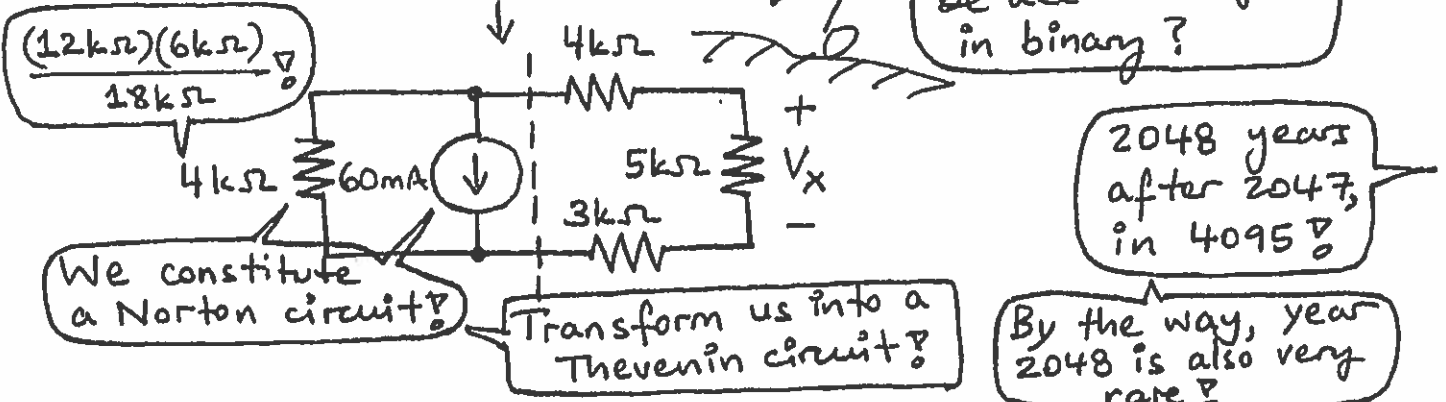 (12kΩ)(6kΩ)!
18kΩ
4kΩ
in binary?
+
4kΩ
60mA
5kΩ
Vx
3kΩ
−
2048 years
after 2047,
in 4095!
We constitute
a Norton circuit!
Transform us into a
Thevenin circuit!
By the way, year
2048 is also very
rare!